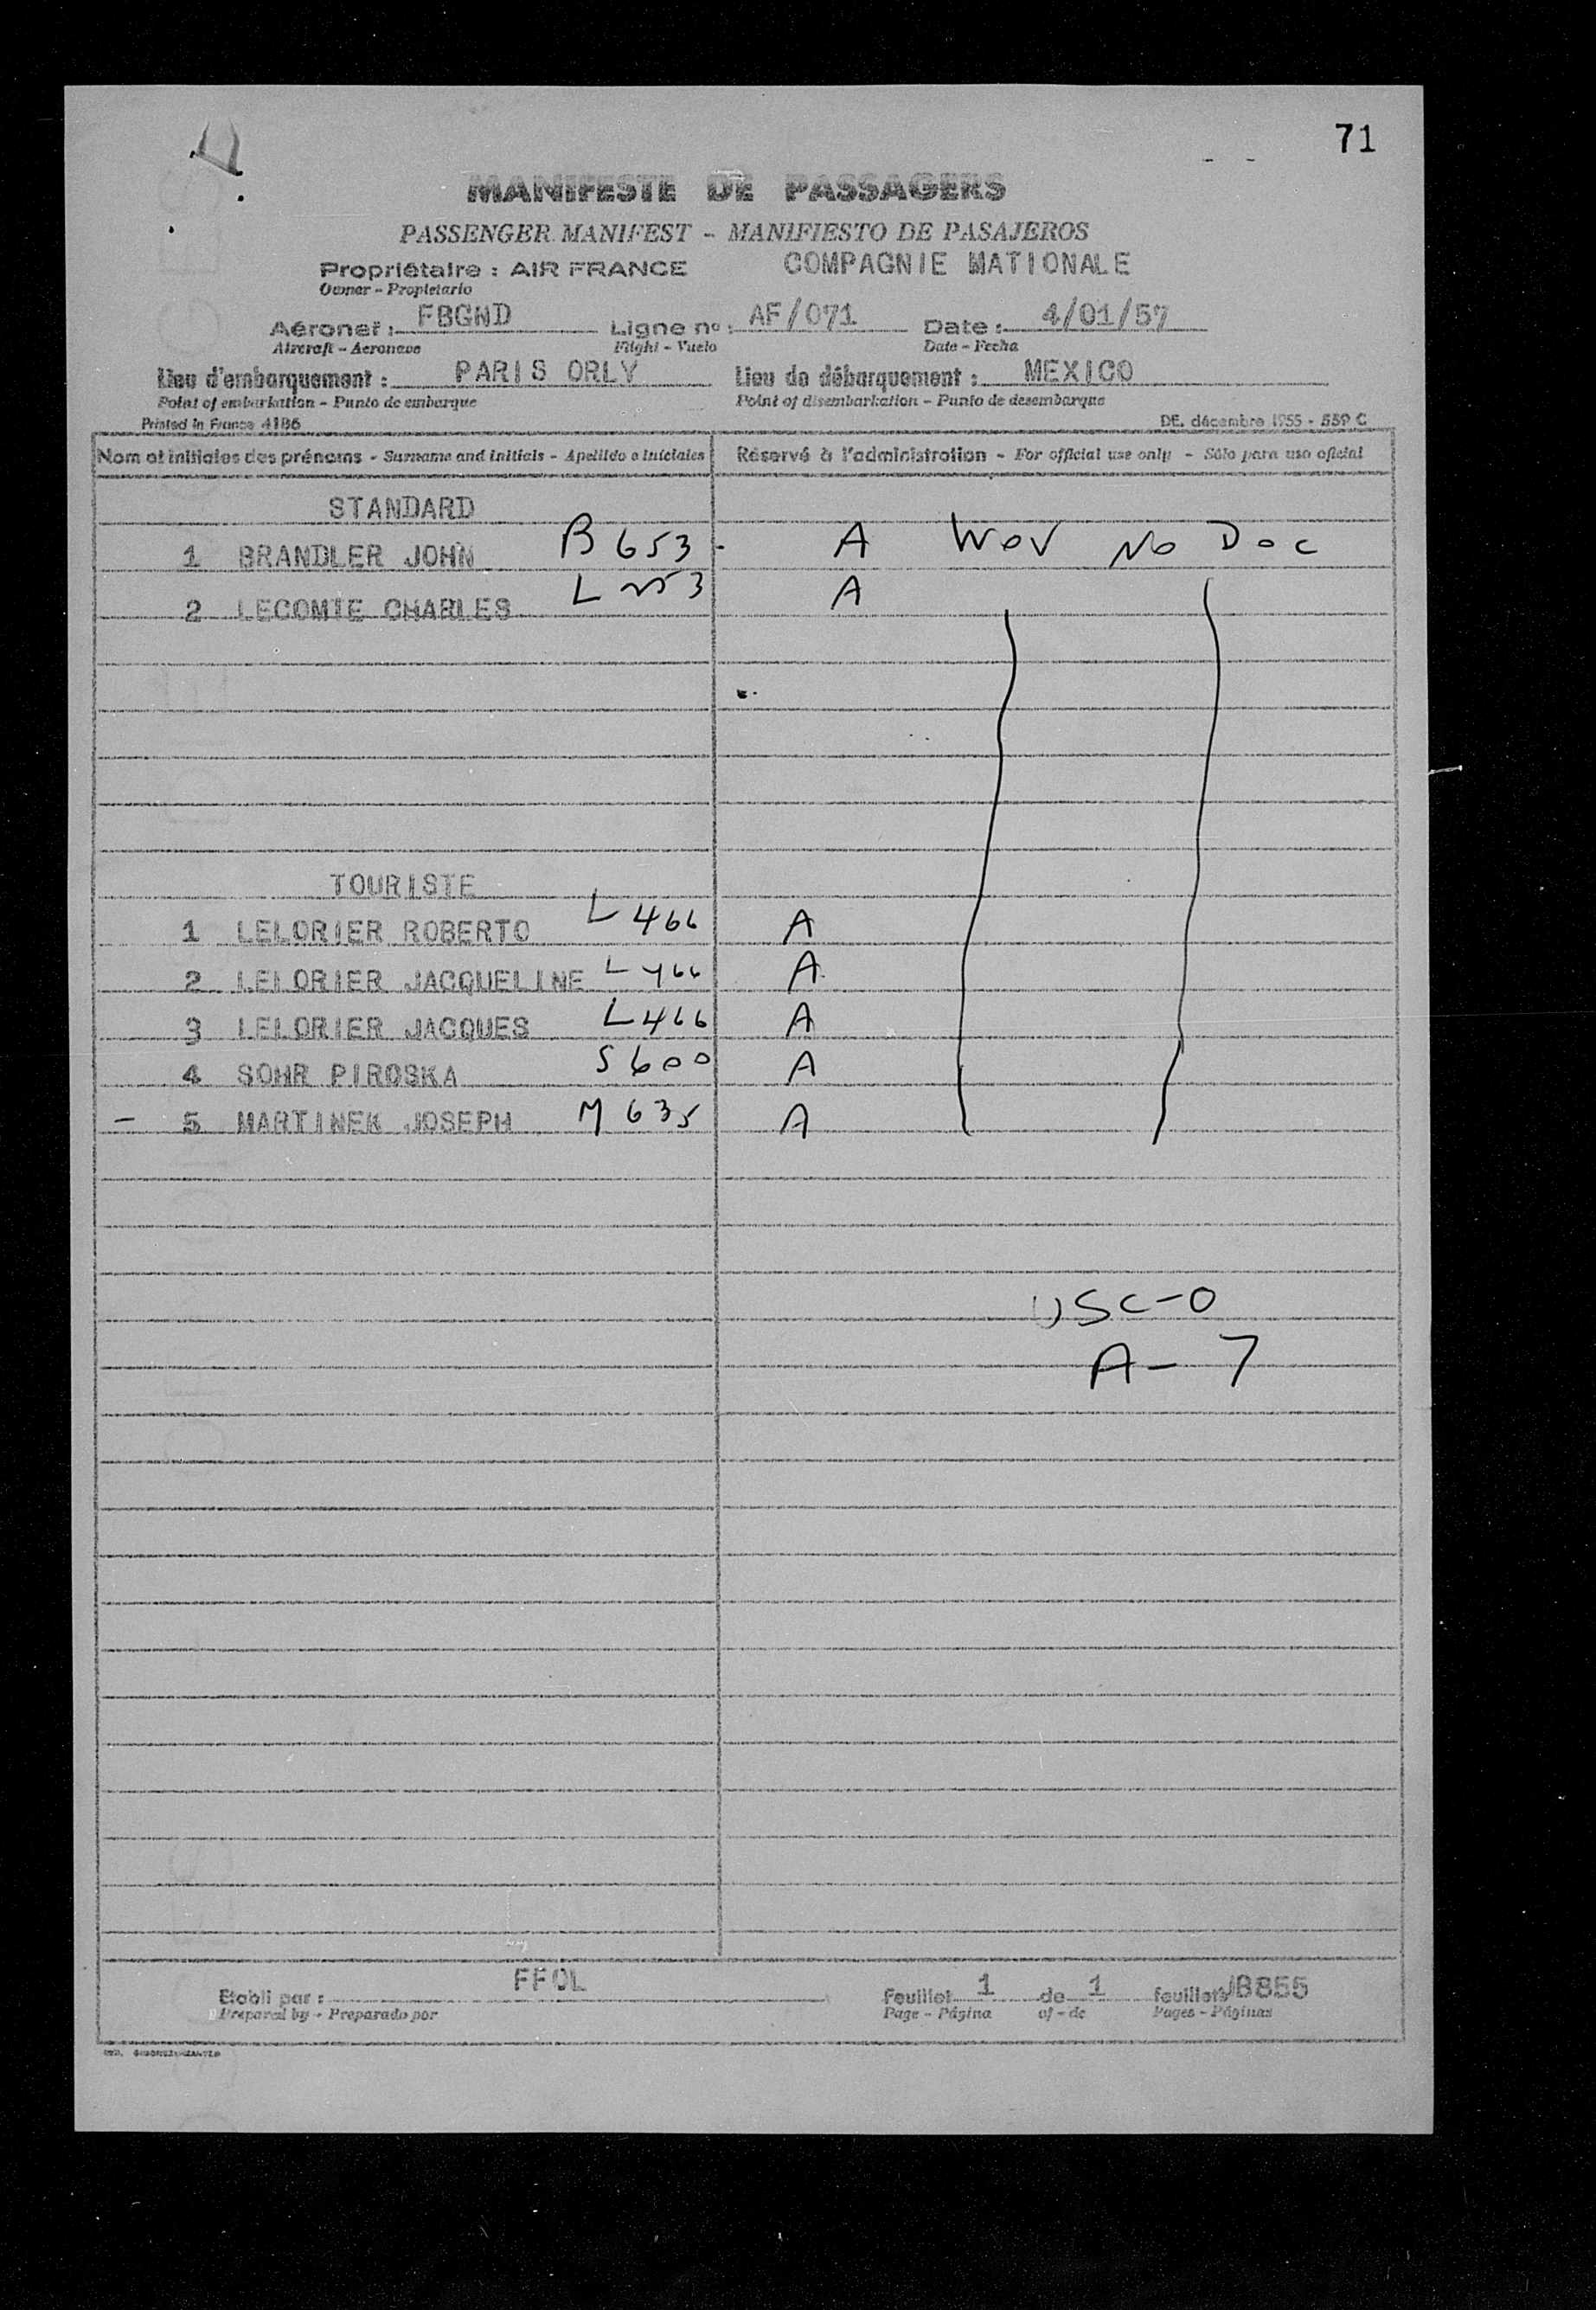 71
MANIFESTE DE PASSAGERS
PASSENGER MANIFEST - MANIFIESTO DE PASAJEROS
Propriétaire : AIR FRANCE COMPAGNIE NATIONALE
Owner - Propietario
Aéronef : FBGND Ligne nº : AF/071 Date : 4/01/57
Aircraft - Aeronave Flight - Vuelo Date - Fecha
Lieu d'embarquement : PARIS ORLY Lieu de débarquement : MEXICO
Point of embarkation - Punto de embarque Point of disembarkation - Punto de desembarque
Printed in France 4186 DE. décembre 1955 - 559 C
Nom et initiales des prénoms - Surname and initials - Apellido e iniciales Réservé à l'administration - For official use only - Sólo para uso oficial
STANDARD
1 BRANDLER JOHN B 653 A WOV No Doc
2 LECOMTE CHARLES L 253 A
TOURISTE
1 LELORIER ROBERTO L 466 A
2 LELORIER JACQUELINE L 466 A
3 LELORIER JACQUES L 466 A
4 SOHR PIROSKA S 600 A
- 5 MARTINEK JOSEPH M 635 A
USC-0
A- 7
Etabli par : FFOL feuillet 1 de 1 feuillets JB855
Prepared by - Preparado por Page - Página of - de Pages - Páginas